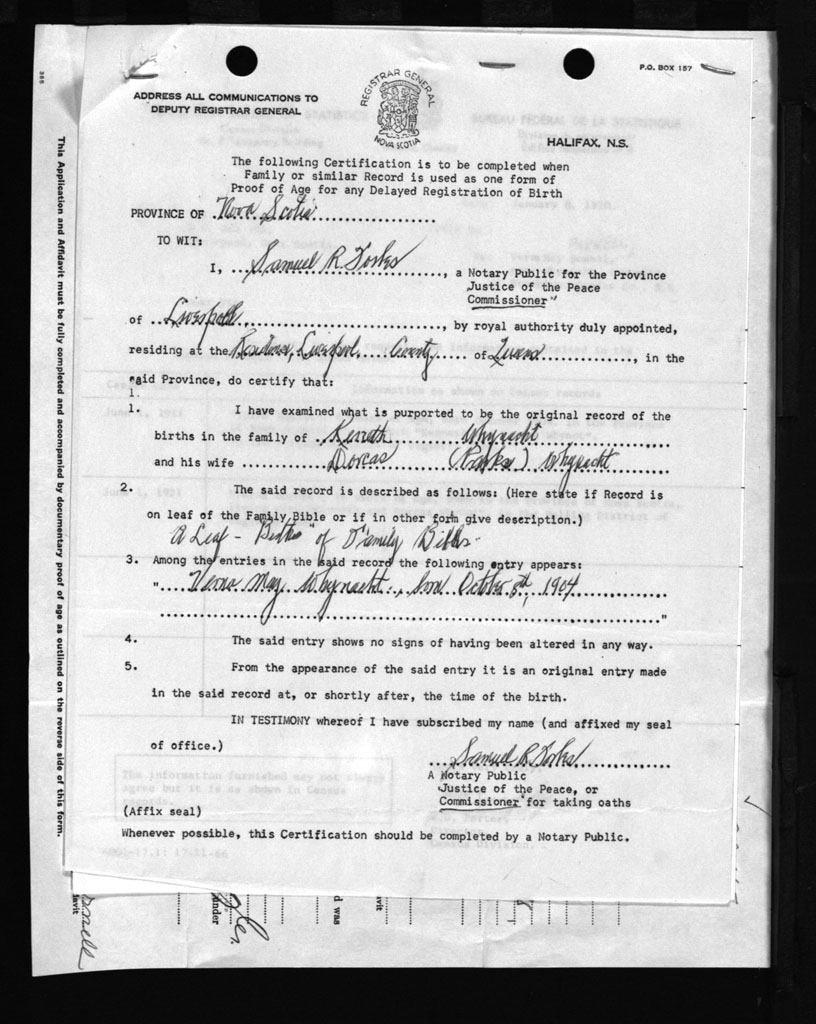 P.O. BOX 157
REGISTRAR GENERAL
NOVA SCOTIA
ADDRESS ALL COMMUNICATIONS TO
DEPUTY REGISTRAR GENERAL
HALIFAX, N.S.
The following Certification is to be completed when
Family or similar Record is used as one form of
Proof of Age for any Delayed Registration of Birth
PROVINCE OF Nova Scotia
TO WIT:
I, Samuel R. Forbes, a Notary Public for the Province
Justice of the Peace
Commissioner"
of Liverpool, by royal authority duly appointed,
residing at the Liverpool, County of Queens, in the
said Province, do certify that:
1.
1. I have examined what is purported to be the original record of the
births in the family of Whynacht
and his wife Dorcas Whynacht
2. The said record is described as follows: (Here state if Record is
on leaf of the Family Bible or if in other form give description.)
A Leaf - Births" of Family Bible -
3. Among the entries in the said record the following entry appears:
"Verna May Whynacht, born October 5th, 1904
"
4. The said entry shows no signs of having been altered in any way.
5. From the appearance of the said entry it is an original entry made
in the said record at, or shortly after, the time of the birth.
IN TESTIMONY whereof I have subscribed my name (and affixed my seal
of office.)
Samuel R. Forbes
A Notary Public
Justice of the Peace, or
Commissioner for taking oaths
(Affix seal)
Whenever possible, this Certification should be completed by a Notary Public.
This Application and Affidavit must be fully completed and accompanied by documentary proof of age as outlined on the reverse side of this form.